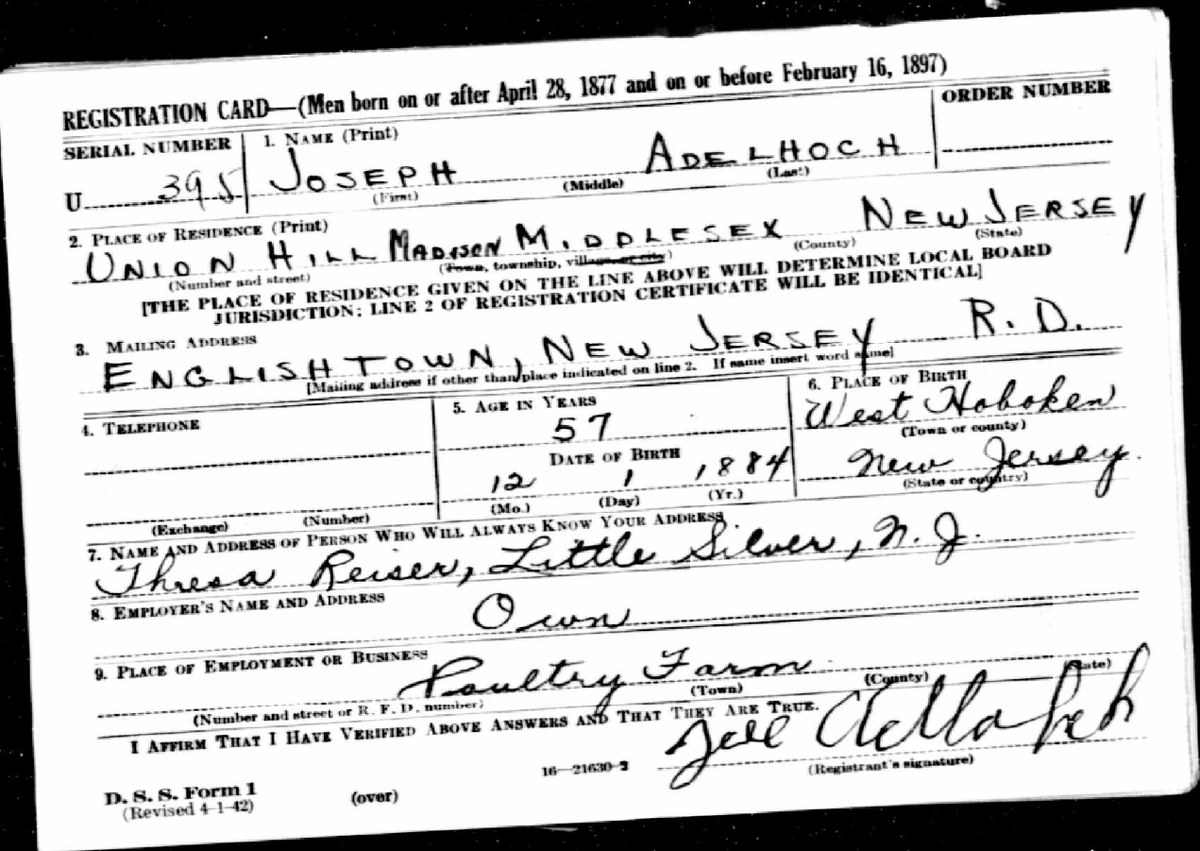 REGISTRATION CARD—(Men born on or after April 28, 1877 and on or before February 16, 1897)
SERIAL NUMBER
1. NAME (Print)
ORDER NUMBER
U 395
JOSEPH ADELHOCH
(First) (Middle) (Last)
2. PLACE OF RESIDENCE (Print)
UNION HILL MADISON MIDDLESEX NEW JERSEY
(Number and street) (Town, township, village, or city) (County) (State)
[THE PLACE OF RESIDENCE GIVEN ON THE LINE ABOVE WILL DETERMINE LOCAL BOARD
JURISDICTION; LINE 2 OF REGISTRATION CERTIFICATE WILL BE IDENTICAL]
3. MAILING ADDRESS
ENGLISHTOWN, NEW JERSEY R. D.
[Mailing address if other than place indicated on line 2. If same insert word same]
4. TELEPHONE
(Exchange) (Number)
5. AGE IN YEARS
57
DATE OF BIRTH
12 1 1884
(Mo.) (Day) (Yr.)
6. PLACE OF BIRTH
West Hoboken
(Town or county)
New Jersey.
(State or country)
7. NAME AND ADDRESS OF PERSON WHO WILL ALWAYS KNOW YOUR ADDRESS
Thresa Reiser, Little Silver, N. J.
8. EMPLOYER'S NAME AND ADDRESS
Own
9. PLACE OF EMPLOYMENT OR BUSINESS
Poultry Farm
(Number and street or R. F. D. number) (Town) (County) (State)
I AFFIRM THAT I HAVE VERIFIED ABOVE ANSWERS AND THAT THEY ARE TRUE.
D. S. S. Form 1
(Revised 4-1-42)
(over)
16—21630-2
(Registrant's signature)